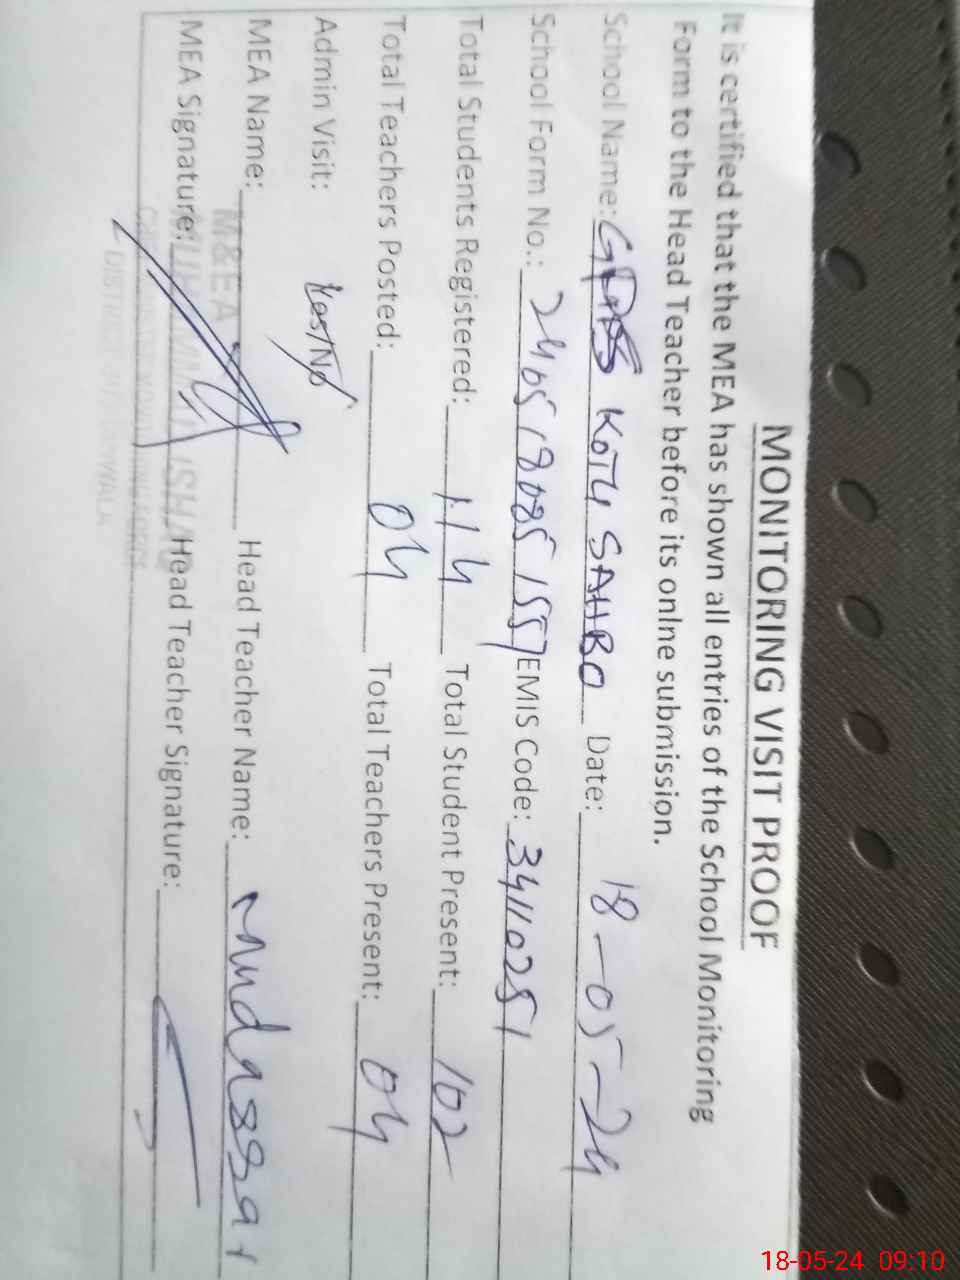 MONITORING VISIT PROOF
It is certified that the MEA has shown all entries of the School Monitoring
Form to the Head Teacher before its onlne submission.
School Name: GPS KOTLI SAHBO Date: 18-05-24
School Form No.: 24051808515 57 EMIS Code: 34110251
Total Students Registered: 114 Total Student Present: 102
Total Teachers Posted: 04 Total Teachers Present: 04
Admin Visit: Yes/No
MEA Name: Head Teacher Name: Mudassar
MEA Signature: Head Teacher Signature:
M&EA
18-05-24 09:10